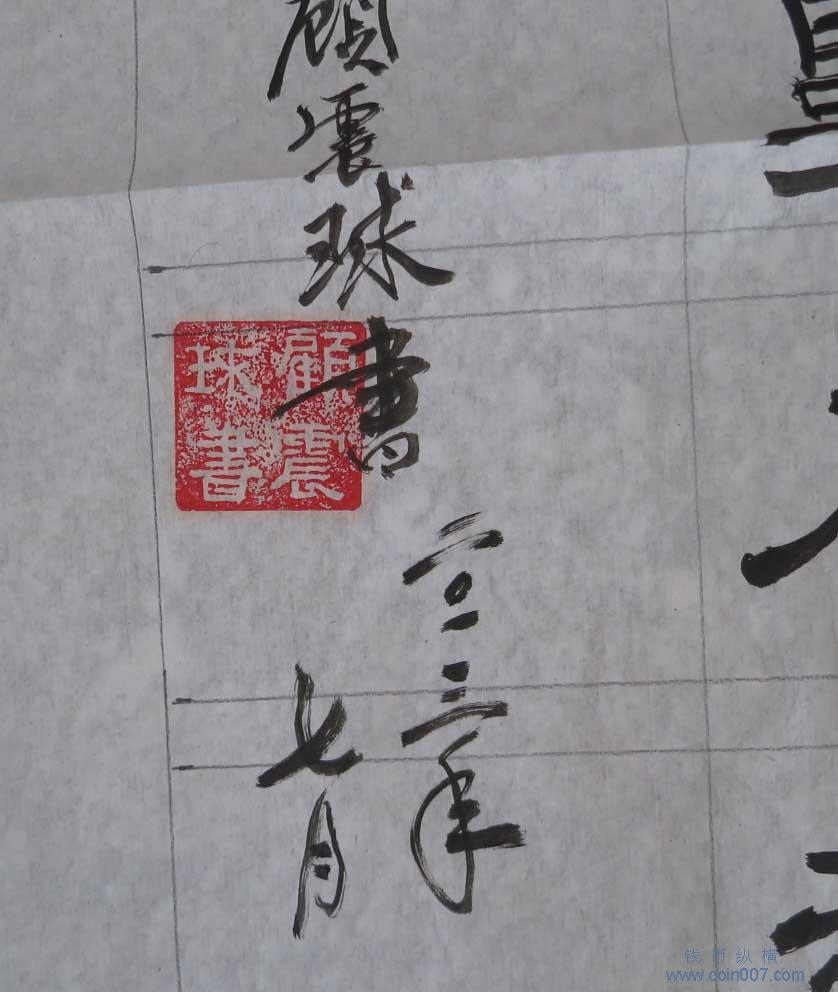 顧震球書
二〇一三年
七月
顧震
球書
钱币纵横
www.coin007.com